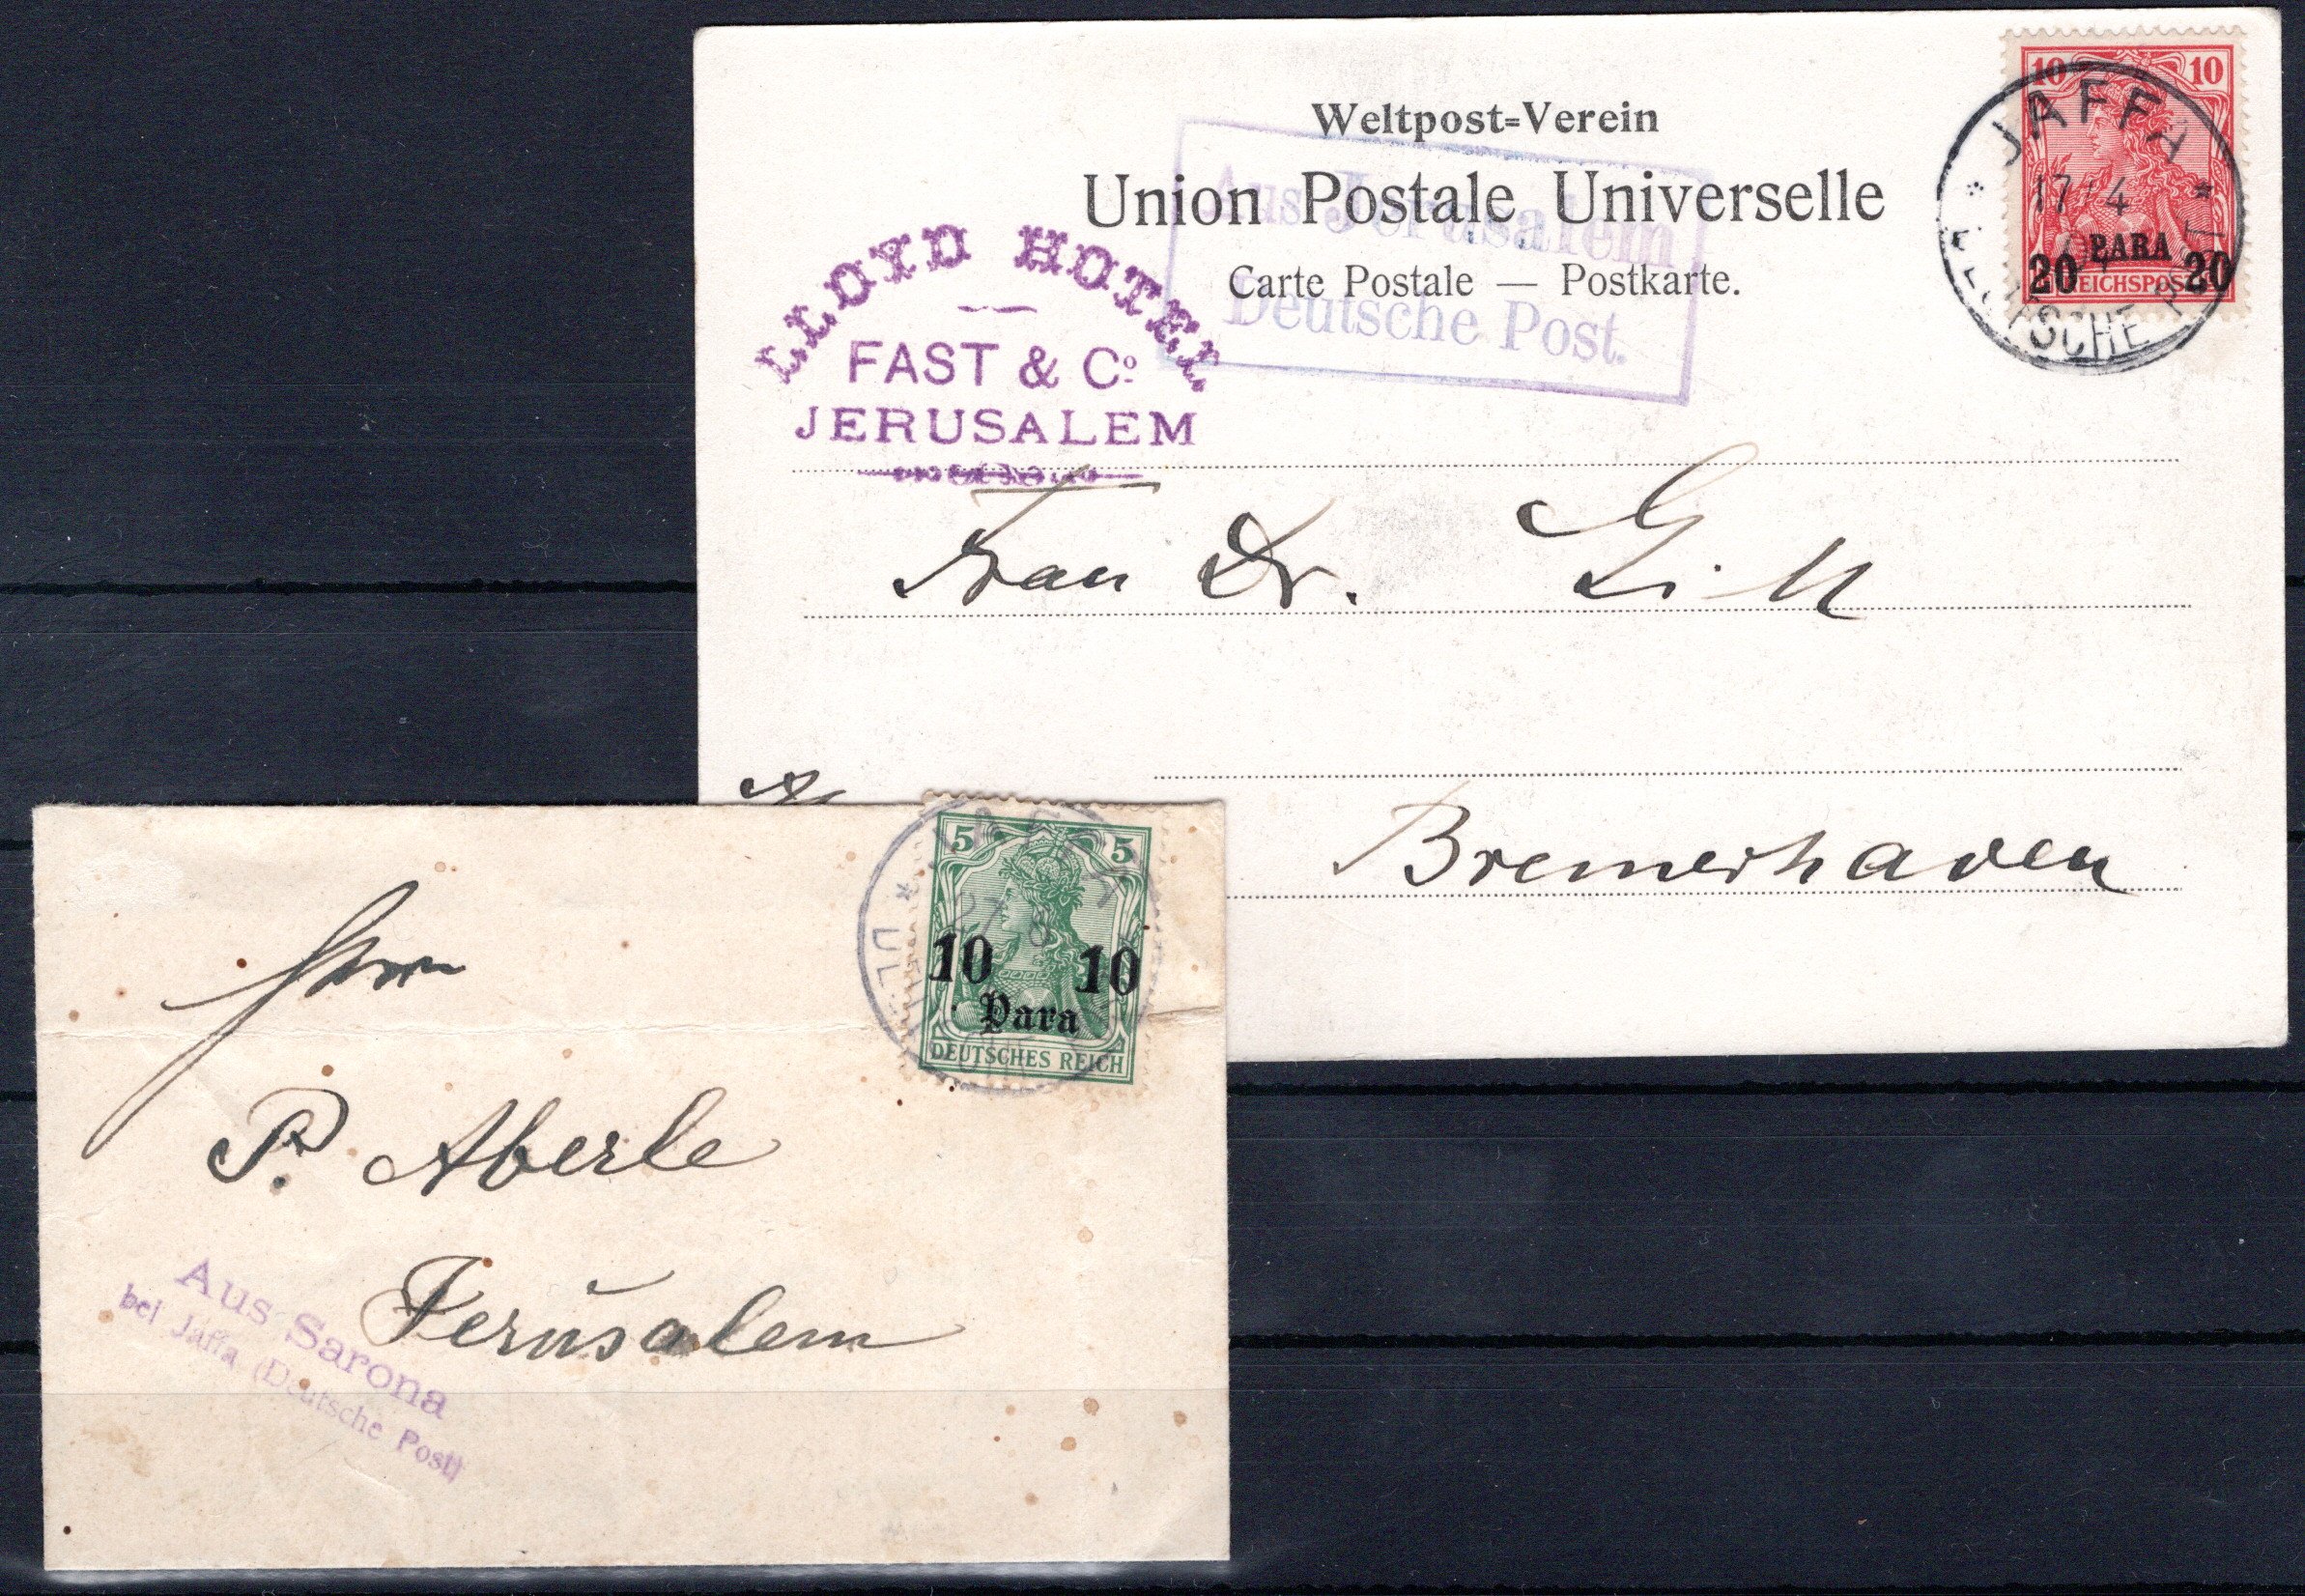 Weltpost=Verein
Union Postale Universelle
Carte Postale — Postkarte.
Aus Jerusalem
Deutsche Post.
LLOYD HOTEL
FAST & Co.
JERUSALEM
10 10
PARA
20 20
REICHSPOST
JAFFA
17/4
DEUTSCHE POST
Frau Dr.
Bremerhaven
5 5
10 10
Para
DEUTSCHES REICH
JAFFA
Herrn
P. Aberle
Jerusalem
Aus Sarona
bei Jaffa (Deutsche Post)